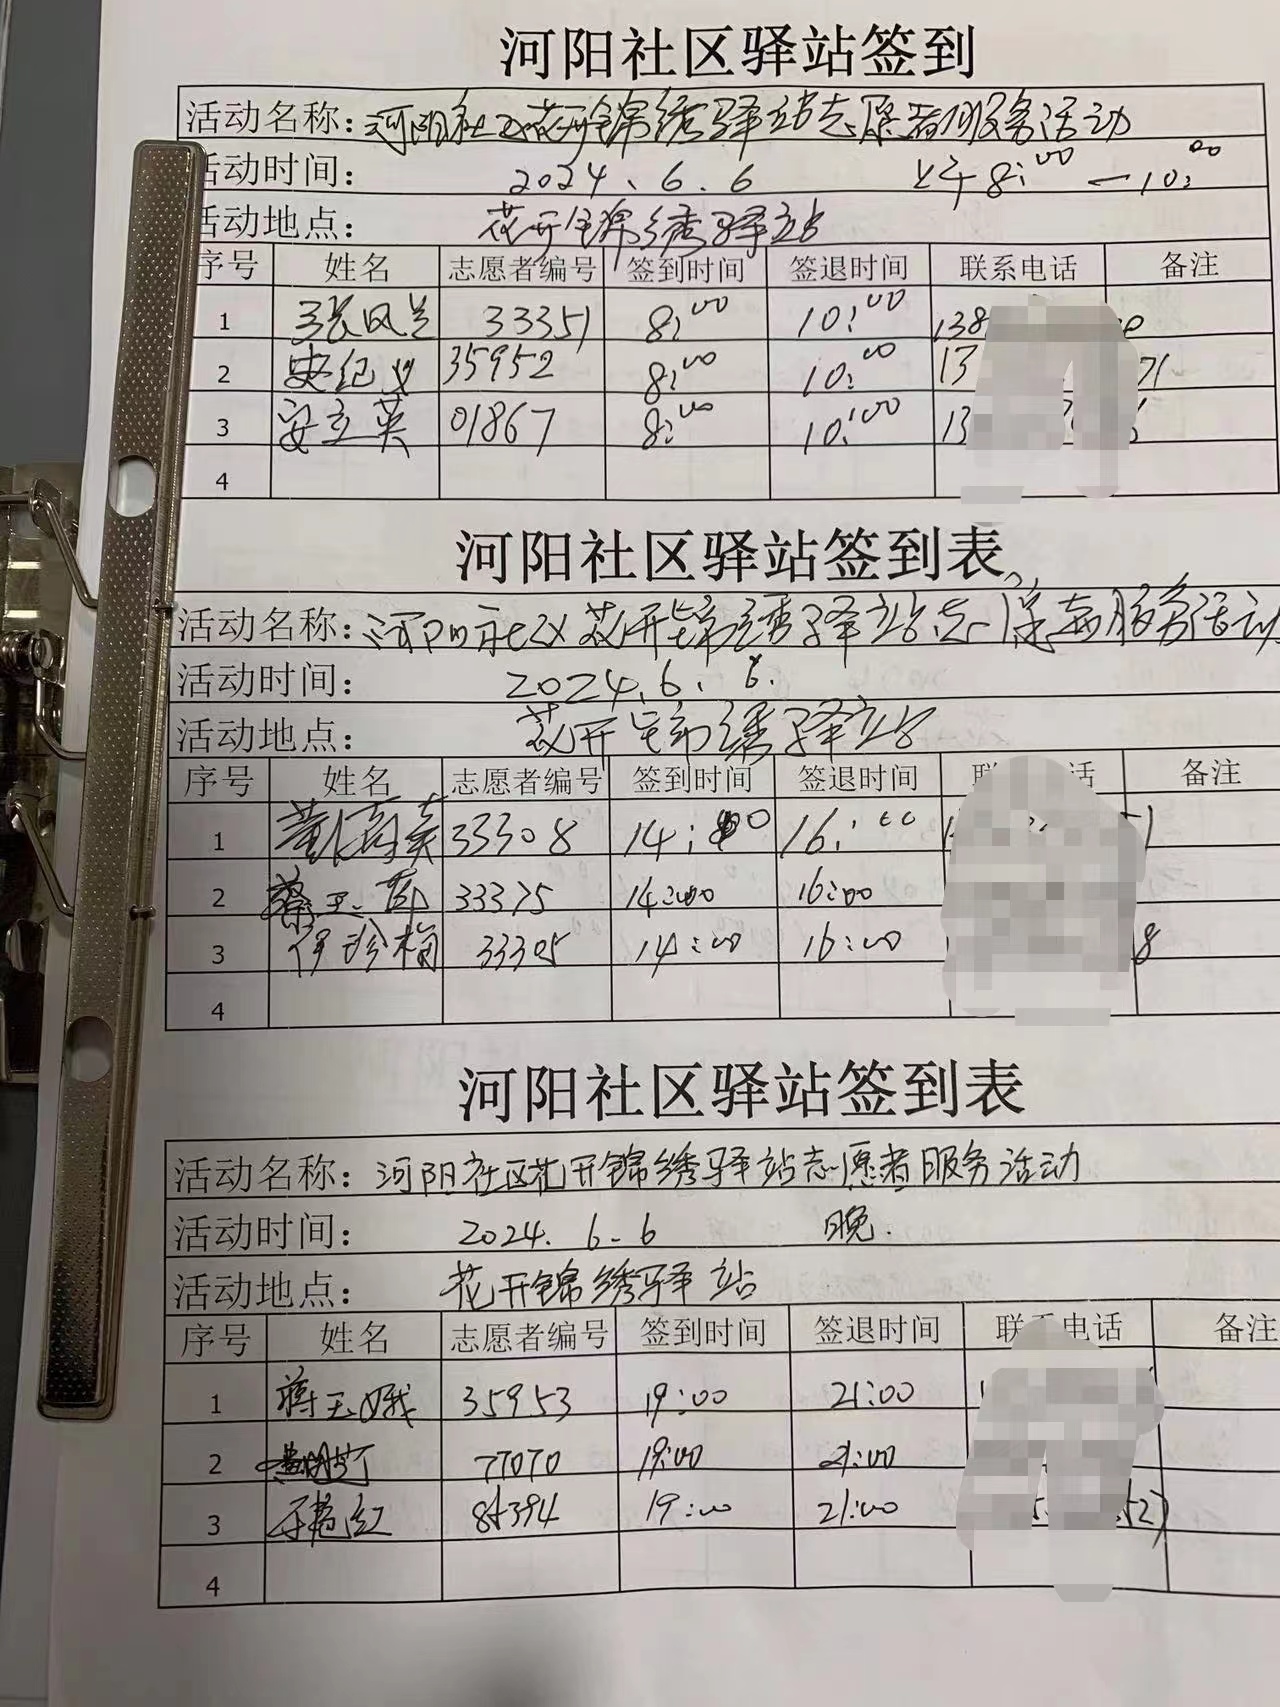 河阳社区驿站签到
活动名称：河阳社区花开锦绣驿站志愿者服务活动
活动时间： 2024.6.6 上午8:00—10:00
活动地点： 花开锦绣驿站
序号 姓名 志愿者编号 签到时间 签退时间 联系电话 备注
1 张凤兰 33351 8:00 10:00 138
2 史纪义 35952 8:00 10:00 13 71
3 安立英 01867 8:00 10:00 13
4
河阳社区驿站签到表
活动名称：河阳社区花开锦绣驿站志愿者服务活动
活动时间： 2024.6.6.
活动地点： 花开锦绣驿站
序号 姓名 志愿者编号 签到时间 签退时间 联 话 备注
1 33308 14:00 16:00 1
2 33375 14:00 16:00
3 伊珍梅 33305 14:00 16:00 8
4
河阳社区驿站签到表
活动名称：河阳社区花开锦绣驿站志愿者服务活动
活动时间： 2024.6.6 晚.
活动地点： 花开锦绣驿站
序号 姓名 志愿者编号 签到时间 签退时间 联系电话 备注
1 蒋玉娥 35953 19:00 21:00
2 77070 19:00 21:00
3 红 84394 19:00 21:00 527
4